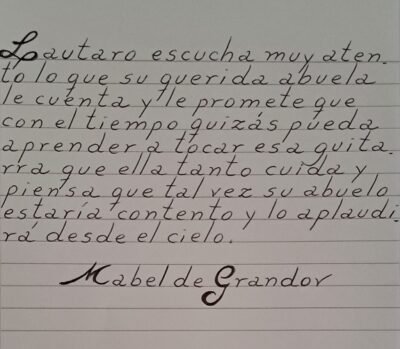 Lautaro escucha muy aten.
to lo que su querida abuela
le cuenta y le promete que
con el tiempo quizás pueda
aprender a tocar esa guita.
rra que ella tanto cuida y
piensa que tal vez su abuelo
estaría contento y lo aplaudi.
rá desde el cielo.
Mabel de Grandov